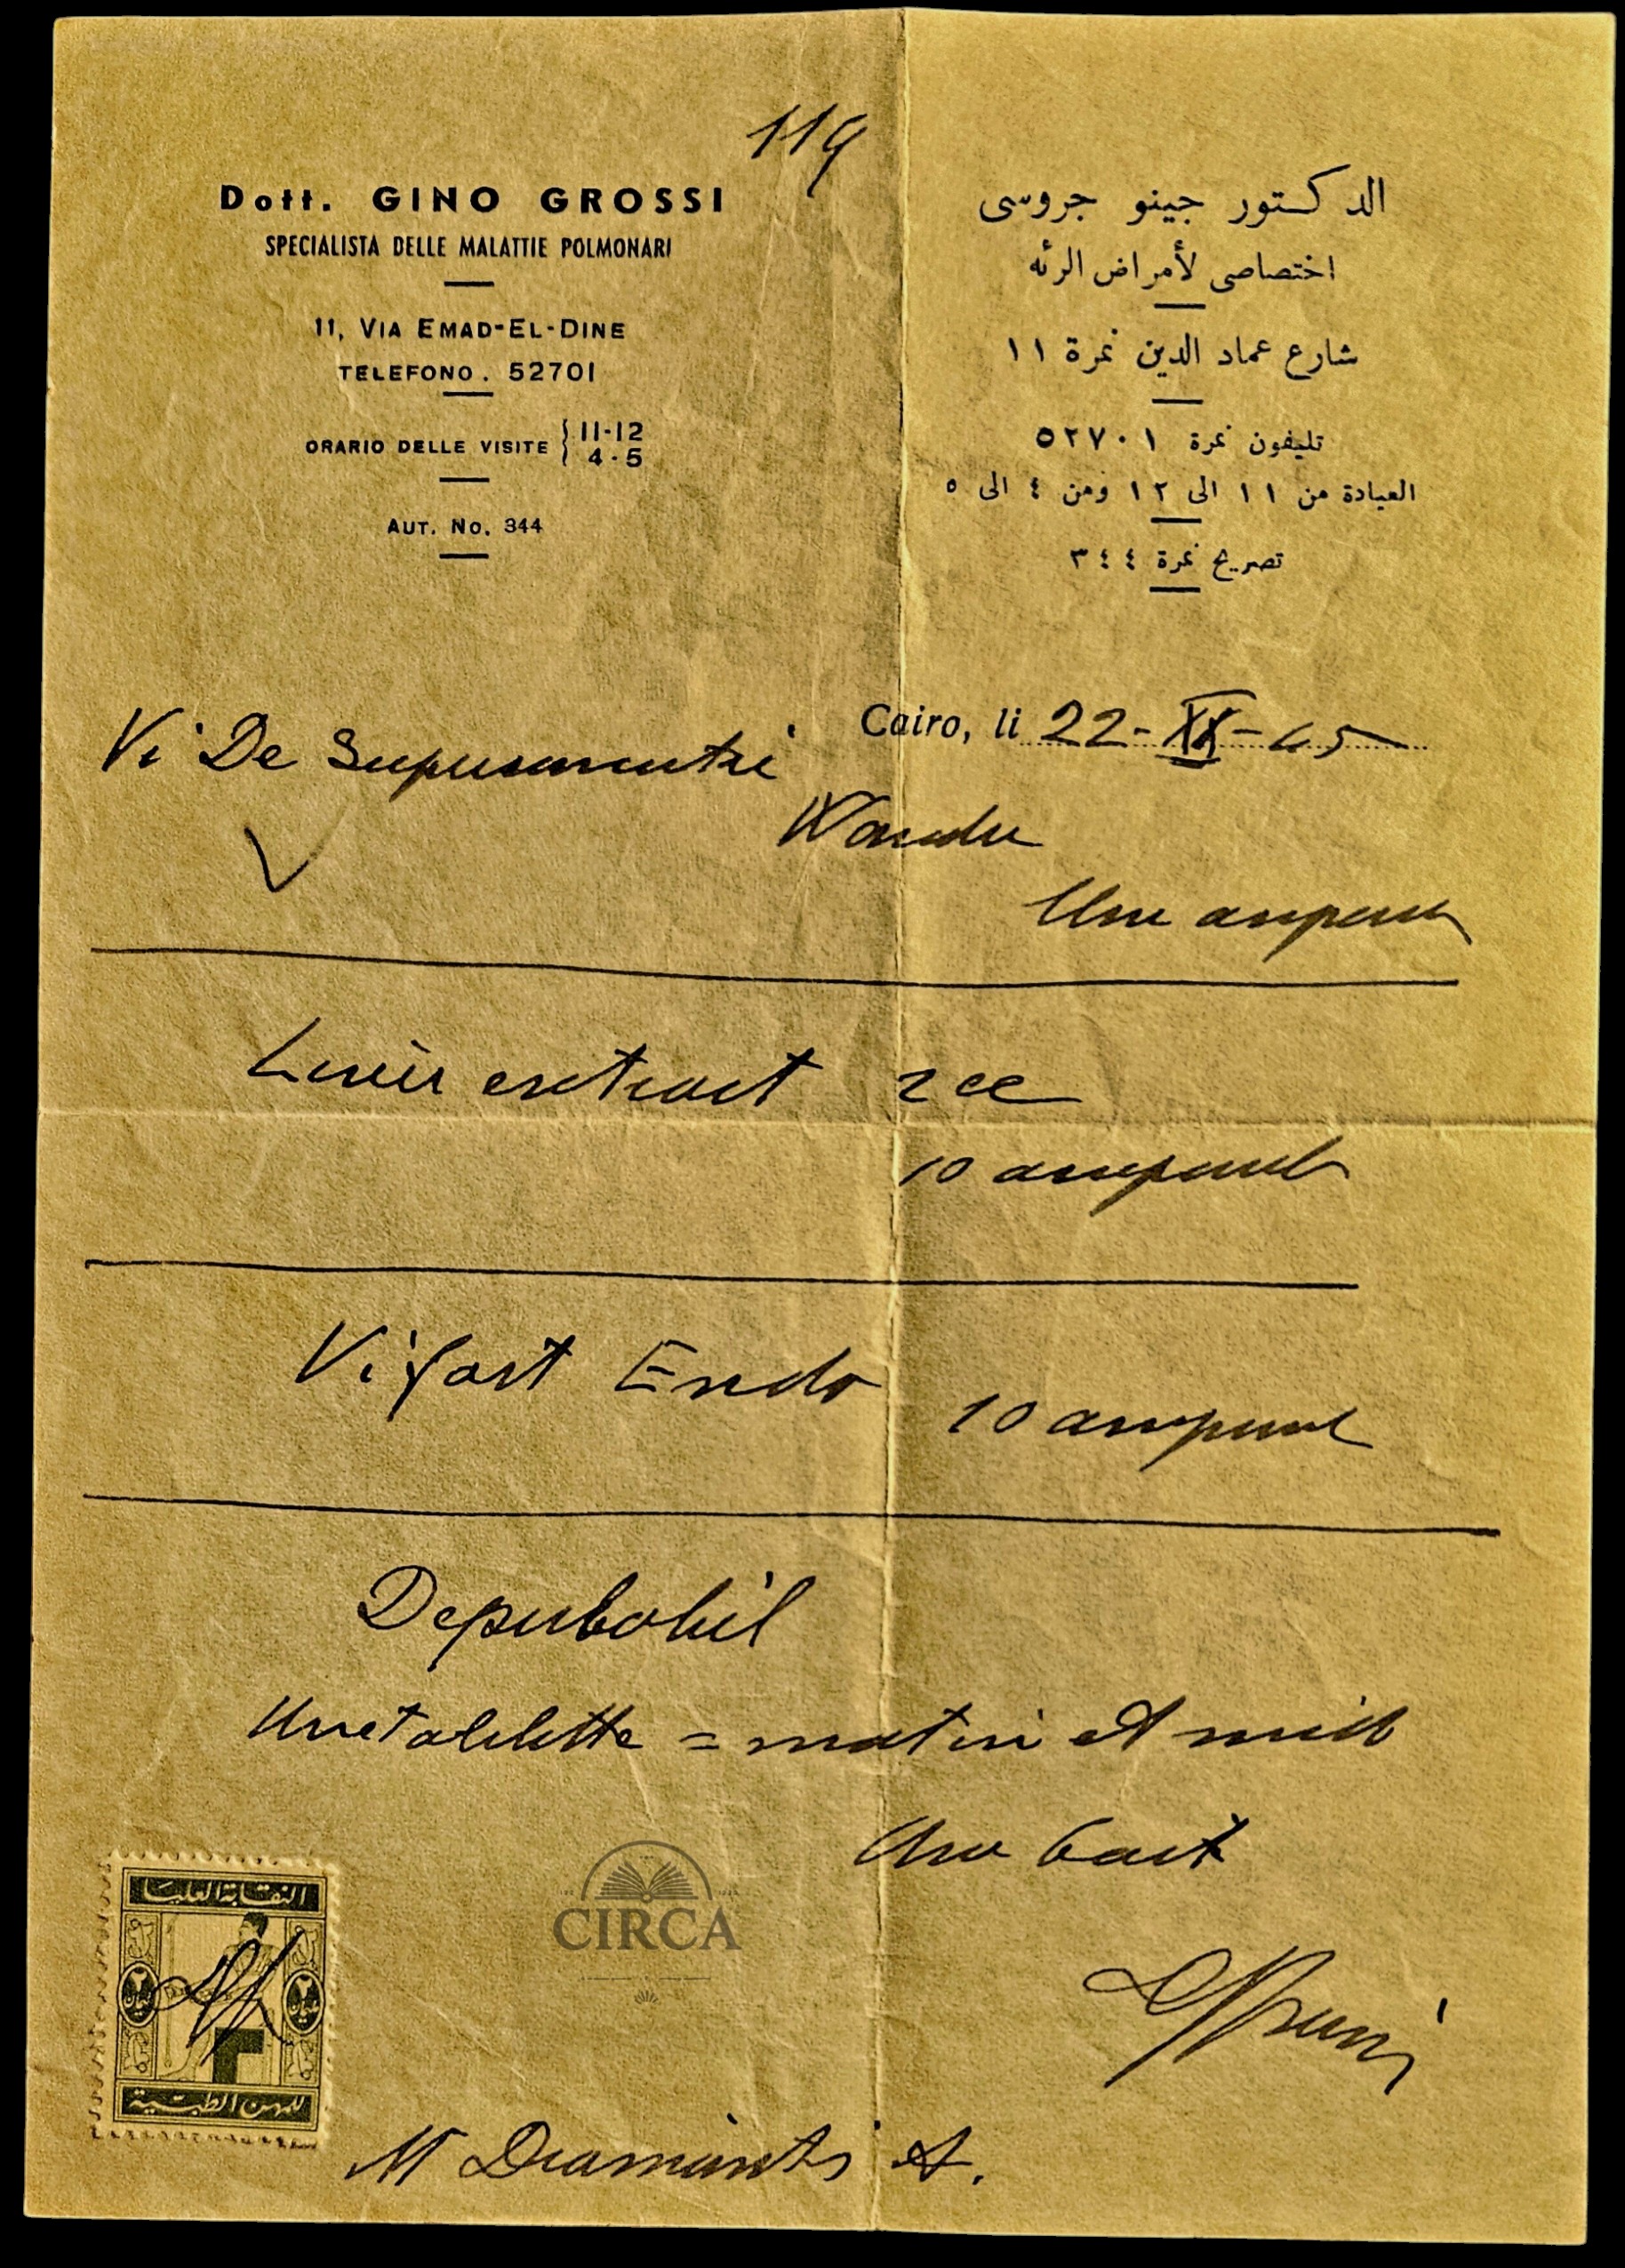 119
Dott. GINO GROSSI
SPECIALISTA DELLE MALATTIE POLMONARI
11, VIA EMAD-EL-DINE
TELEFONO. 52701
ORARIO DELLE VISITE { 11-12
4-5
AUT. No. 344
الدكتور جينو جروسى
اختصاصى لأمراض الرئه
شارع عماد الدين نمرة ١١
تليفون نمرة ٥٢٧٠١
العيادة من ١١ الى ١٢ ومن ٤ الى ٥
تصريح نمرة ٣٤٤
Cairo, li 22-
Vi De
Une
extract 2 cc
10
Endo
10
Une tablette = matin et midi
Une
النقابة العليا
للمهن الطبية
CIRCA
M Diamanti A.